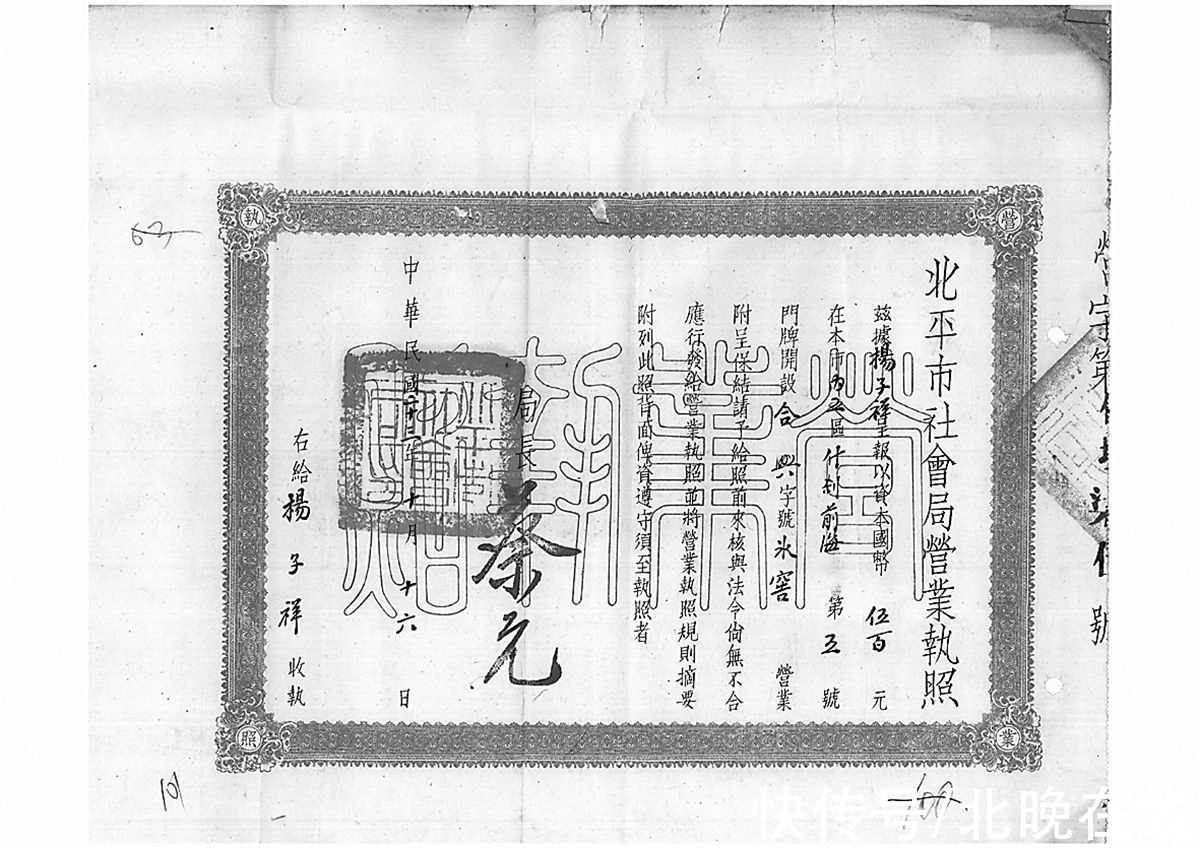 北平市社會局營業執照
茲據楊子祥呈報以資本國幣伍百元
在本市內五區什刹前海第五號
門牌開設合興字號氷窖營業
附呈保結請予給照前來核與法令尙無不合
應行發給營業執照並將營業執照規則摘要
附列此照背面俾資遵守須至執照者
局長蔡元
中華民國二十三年十月十六日
右給楊子祥收執
營
業
執
照
營業執照
101
快传号/北晚在线